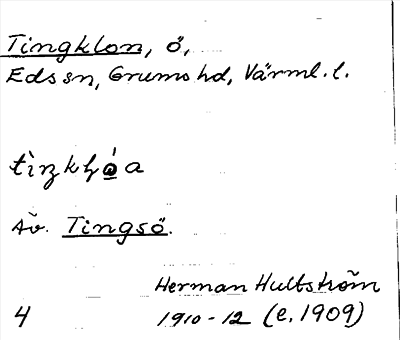 Tingklon, ö,
Eds sn, Grums hd, Värml. l.
Äv. Tingsö.
Herman Hultström
4 1910-12 (e. 1909)